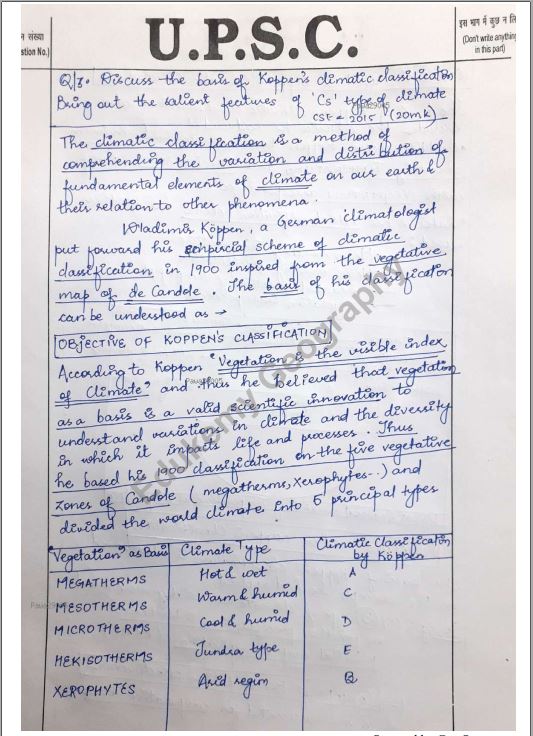 न संख्या
stion No.)
U.P.S.C.
इस भाग में कुछ न लि
(Don't write anything
in this part)
Q/8. Discuss the basis of Koppen's climatic classification
Bring out the salient features of 'Cs' type of climate
CSE - 2015 (20mk)
The climatic classification is a method of
comprehending the variation and distribution of
fundamental elements of climate on our earth &
their relation to other phenomena.
Wladimir Köppen, a German climatologist
put forward his empircial scheme of climatic
classification in 1900 inspired from the vegetative
map of de Candole. The basis of his classification
can be understood as →
OBJECTIVE OF KOPPEN'S CLASSIFICATION
According to Koppen "Vegetation is the visible index
of Climate" and thus he believed that vegetation
as a basis is a valid scientific innovation to
understand variations in climate and the diversity
in which it impacts life and processes. Thus
he based his 1900 classification on the five vegetative
zones of Candole (megatherms, xerophytes--) and
divided the world climate into 5 principal types
"Vegetation" as Basis Climate Type Climatic Classification
by Köppen
MEGATHERMS Hot & wet A
MESOTHERMS Warm & humid C
MICROTHERMS Cool & humid D
HEKISOTHERMS Tundra type E
XEROPHYTES Arid regim B
Edukemy Geography